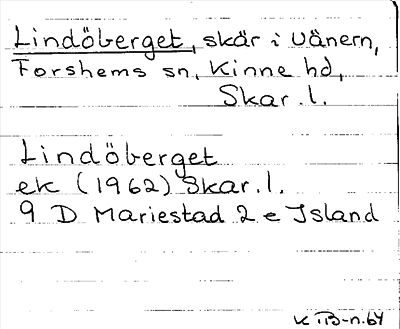 Lindöberget, skär i Vänern,
Forshems sn, Kinne hd,
Skar.l.
Lindöberget
ek (1962) Skar.l.
9 D Mariestad 2 e Island